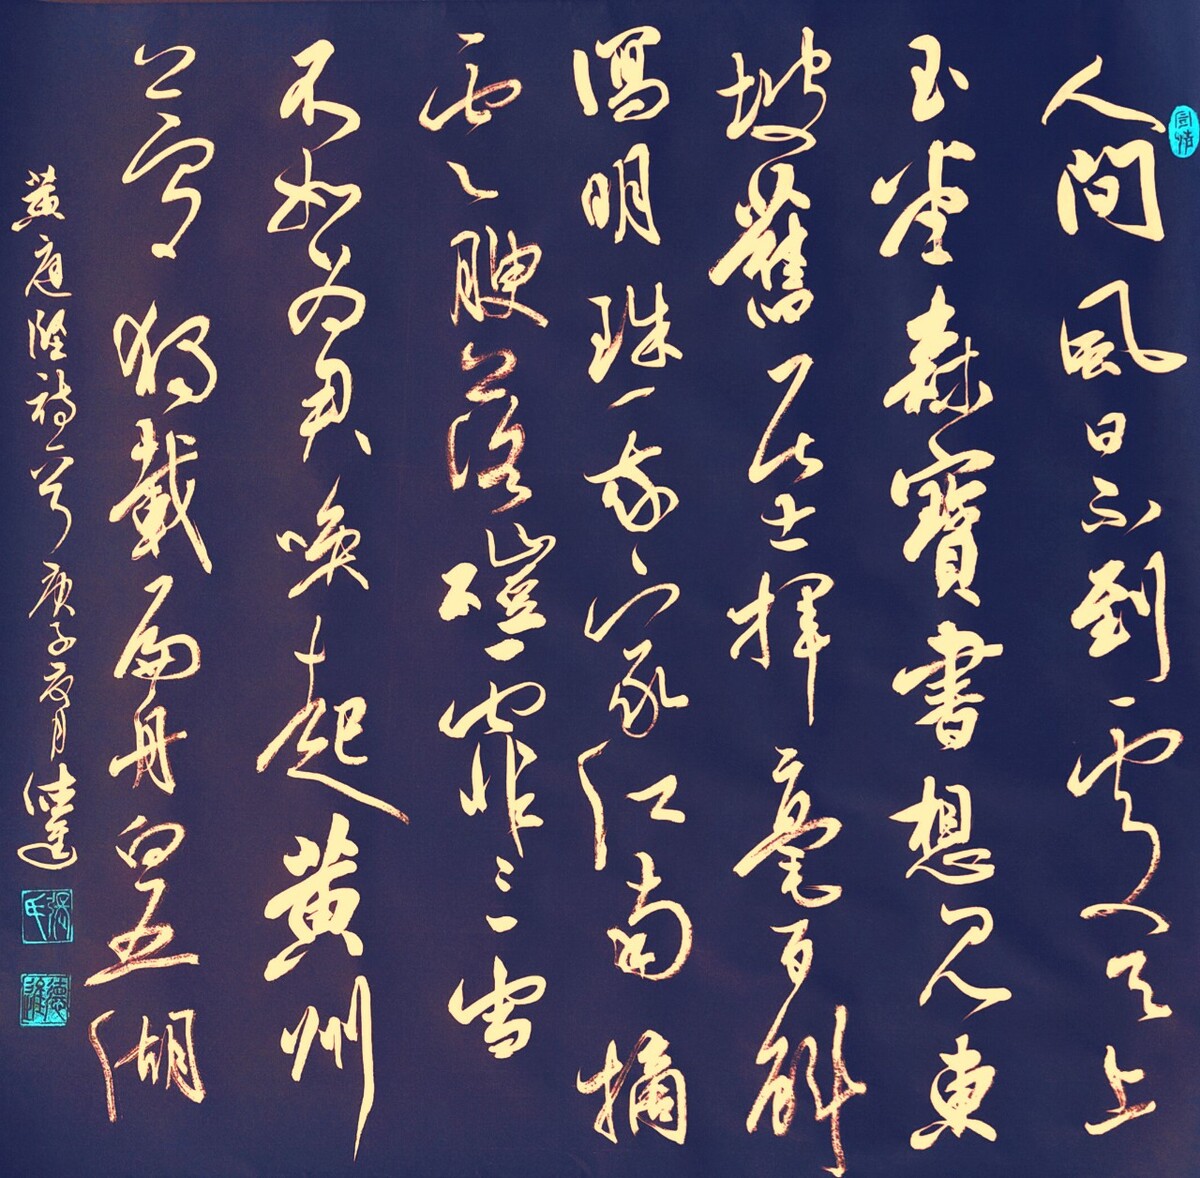 人間風日不到處天上
玉堂森寶書想見東
坡舊居士揮毫百斛
瀉明珠我家江南摘
雲腴落磑霏〻雪
不如為君喚起黄州
夢獨載扁舟向五湖
黄庭堅詩一首庚子夏月